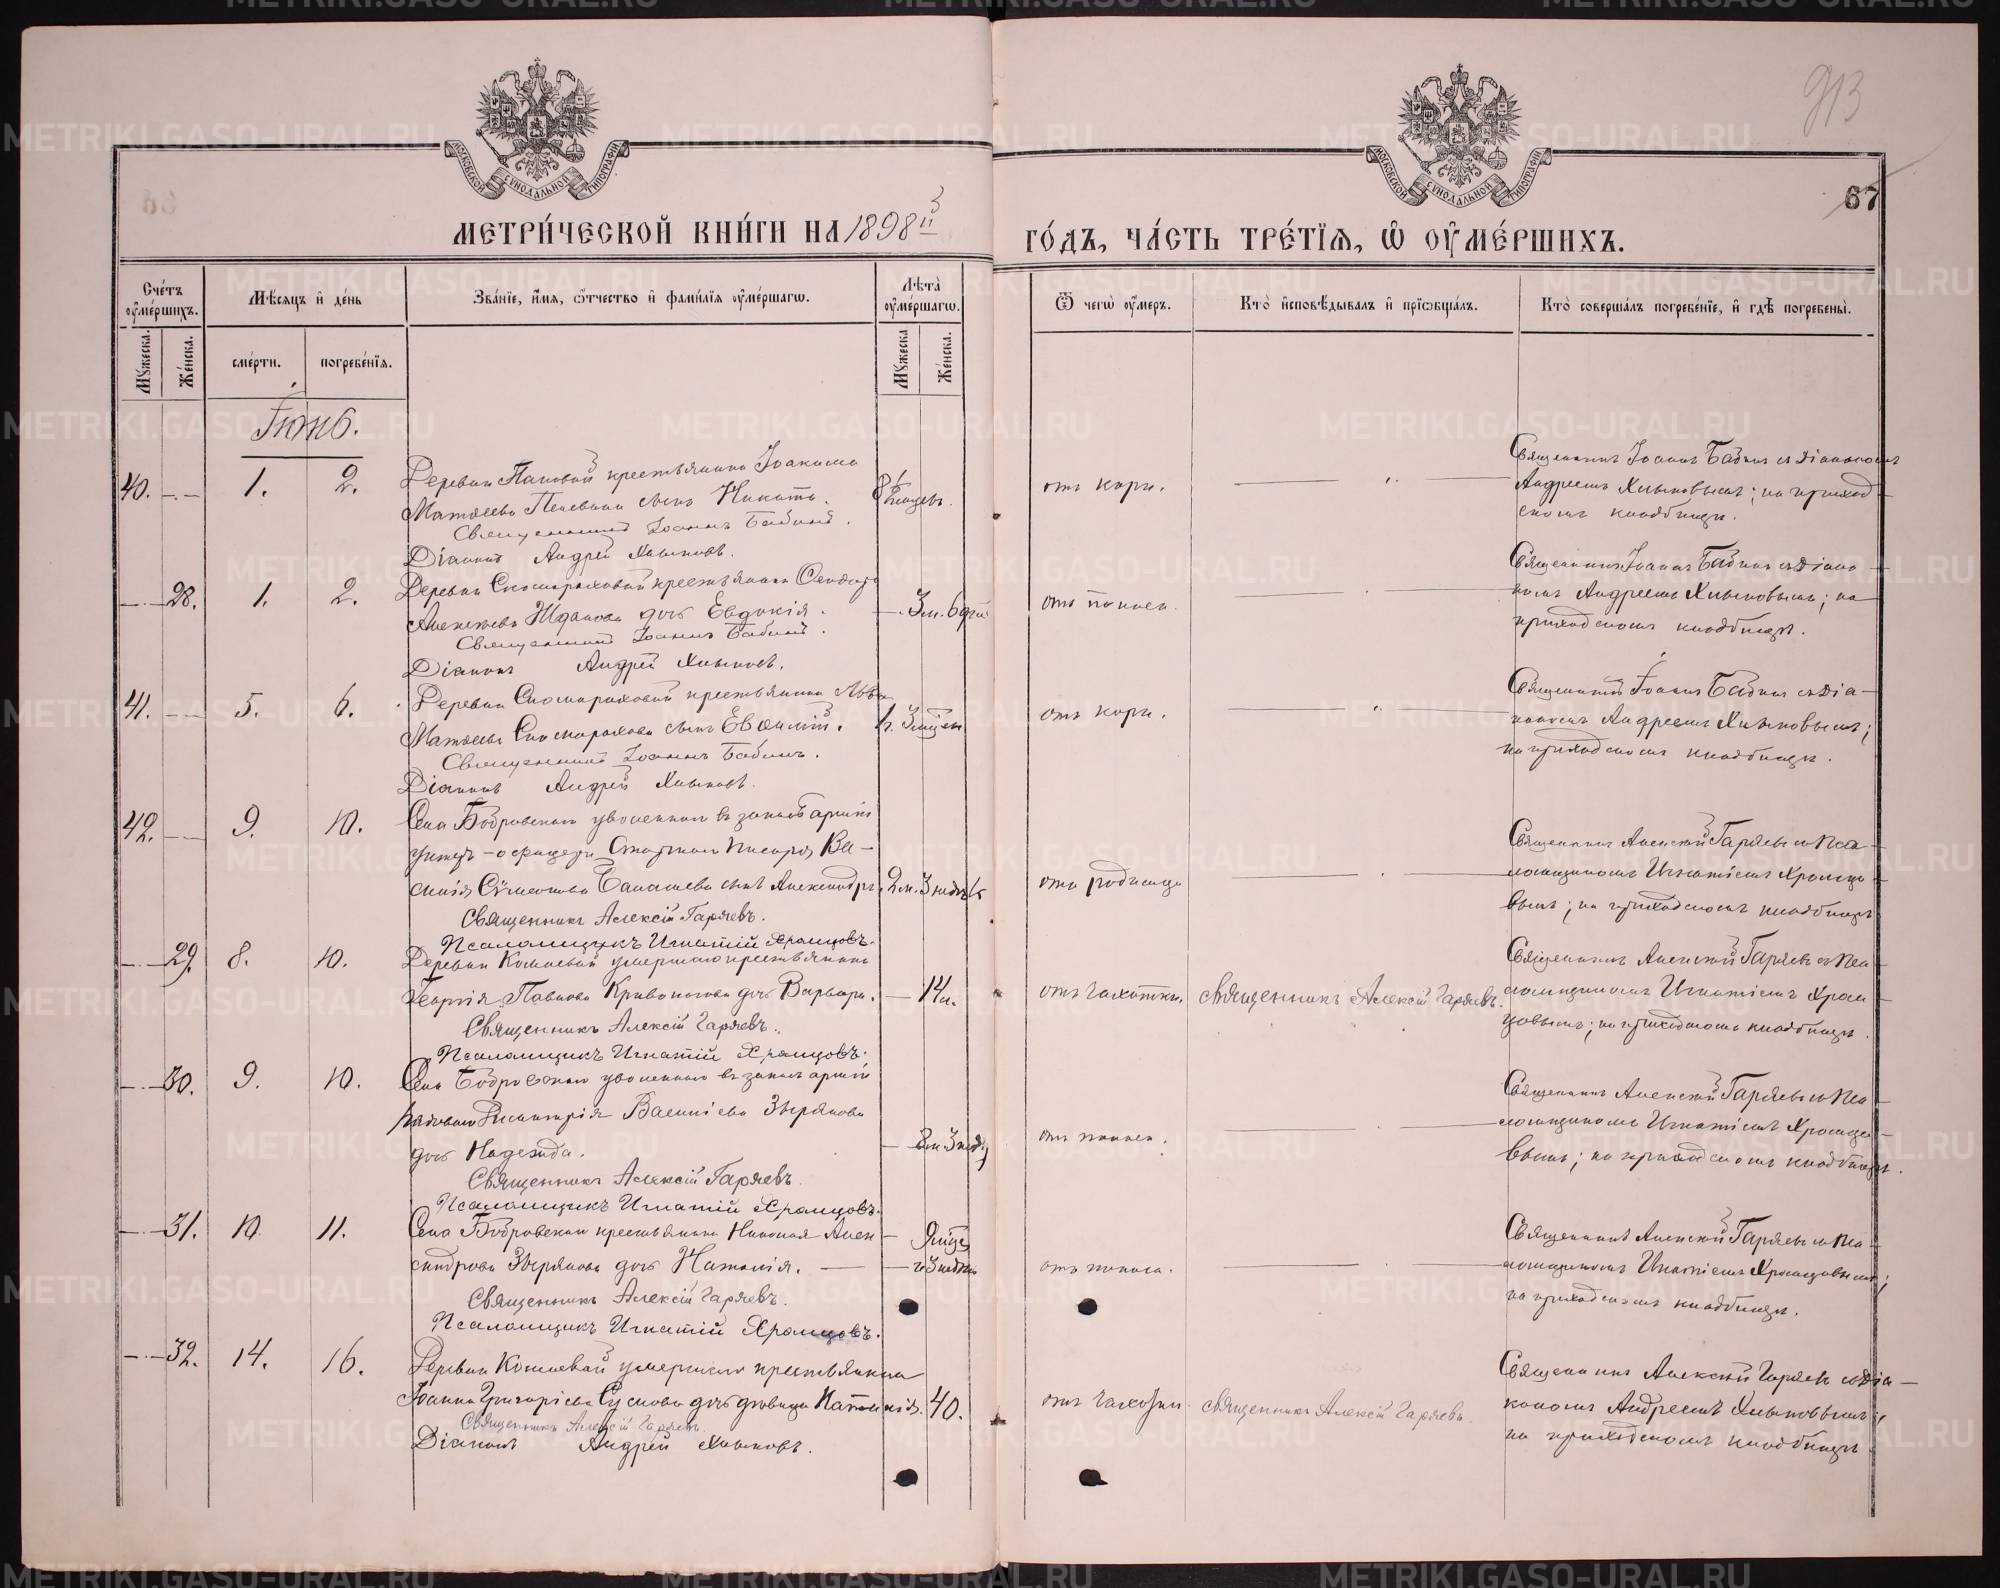 МЕТРИ́ЧЕСКОЙ КНИ́ГИ НА 1898й
ГО́ДЪ, ЧА́СТЬ ТРЕ́ТІѦ, Ѡ ОУ҆МЕ́РШИХЪ.
913
67
МОСКОВСКОЙ СѴНОДАЛЬНОЙ ТИПОГРАФІИ
МОСКОВСКОЙ СѴНОДАЛЬНОЙ ТИПОГРАФІИ
Сче́тъ оу҆ме́ршихъ.
Мѣ́сяцъ и҆ де́нь
Зва́ніе, и҆́мя, ѻ҆́тчество и҆ фами́лія оу҆ме́ршагѡ.
Лѣ́та оу҆ме́ршагѡ.
Ѿ чегѡ̀ оу҆́меръ.
Кто̀ и҆сповѣ́дывалъ и҆ прїѡбща́лъ.
Кто̀ соверша́лъ погребе́ніе, и҆ гдѣ̀ погребены̀.
Му́жеска.
Же́нска.
сме́рти.
погребе́нія.
Му́жеска
Же́нска.
Іюнь.
40. 1. 2. Деревни Пановой крестьянина Іоакима
Матѳеева сынъ Никита.
Священникъ Іоаннъ Бабинъ.
Діаконъ Андрей Хлыновъ.
отъ кори.
Священникъ Іоаннъ Бабинъ съ діакономъ
Андреемъ Хлыновымъ; на приход
скомъ кладбищѣ.
28. 1. 2. Деревни Скомороховой крестьянина
Алексѣева Жданова дочь Евдокія.
Священникъ Іоаннъ Бабинъ.
Діаконъ Андрей Хлыновъ.
3 м. 6 дней
отъ поноса.
Священникъ Іоаннъ Бабинъ съ діако-
номъ Андреемъ Хлыновымъ; на
приходскомъ кладбищѣ.
41. 5. 6. Деревни Скомороховой крестьянина Льва
Матѳеева Скоморохова сынъ Евѳимій.
Священникъ Іоаннъ Бабинъ.
Діаконъ Андрей Хлыновъ.
отъ кори.
Священникъ Іоаннъ Бабинъ съ діа-
кономъ Андреемъ Хлыновымъ;
на приходскомъ кладбищѣ.
42. 9. 10. Села Бобровскаго уволеннаго въ запасъ арміи
унтеръ-офицера Старшаго писаря Ва-
силія Сѵмеонова сынъ Александръ.
Священникъ Алексій Гаряевъ.
Псаломщикъ Игнатій Храмцовъ.
2 м. 3 недѣли
отъ родимца
Священникъ Алексій Гаряевъ съ пса-
ломщикомъ Игнатіемъ Храмцо-
вымъ; на приходскомъ кладбищѣ
29. 8. 10. Деревни Космаевой умершаго крестьянина
Георгія Павлова Кривоногова дочь Варвара.
Священникъ Алексій Гаряевъ.
Псаломщикъ Игнатій Храмцовъ.
14 л.
отъ чахотки.
Священникъ Алексій Гаряевъ.
Священникъ Алексій Гаряевъ съ пса-
ломщикомъ Игнатіемъ Храм-
цовымъ; на приходскомъ кладбищѣ.
30. 9. 10. Села Бобровскаго уволеннаго въ запасъ арміи
рядоваго Васильева Зырянова
дочь Надежда.
Священникъ Алексій Гаряевъ.
Псаломщикъ Игнатій Храмцовъ.
отъ поноса.
Священникъ Алексій Гаряевъ съ пса-
ломщикомъ Игнатіемъ Храмцо-
вымъ; на приходскомъ кладбищѣ.
31. 10. 11. Села Бобровскаго крестьянина Николая Алек-
сандрова Зырянова дочь Наталія.
Священникъ Алексій Гаряевъ.
Псаломщикъ Игнатій Храмцовъ.
отъ поноса.
Священникъ Алексій Гаряевъ съ пса-
ломщикомъ Игнатіемъ Храмцовымъ;
на приходскомъ кладбищѣ.
32. 14. 16. Деревни Космаевой умершаго крестьянина
Іоанна Григоріева Суслова дочь дѣвица
Священникъ Алексій Гаряевъ.
Діаконъ Андрей Хлыновъ.
40.
отъ чахотки.
Священникъ Алексій Гаряевъ.
Священникъ Алексій Гаряевъ съ діа-
кономъ Андреемъ Хлыновымъ;
на приходскомъ кладбищѣ
METRIKI.GASO-URAL.RU